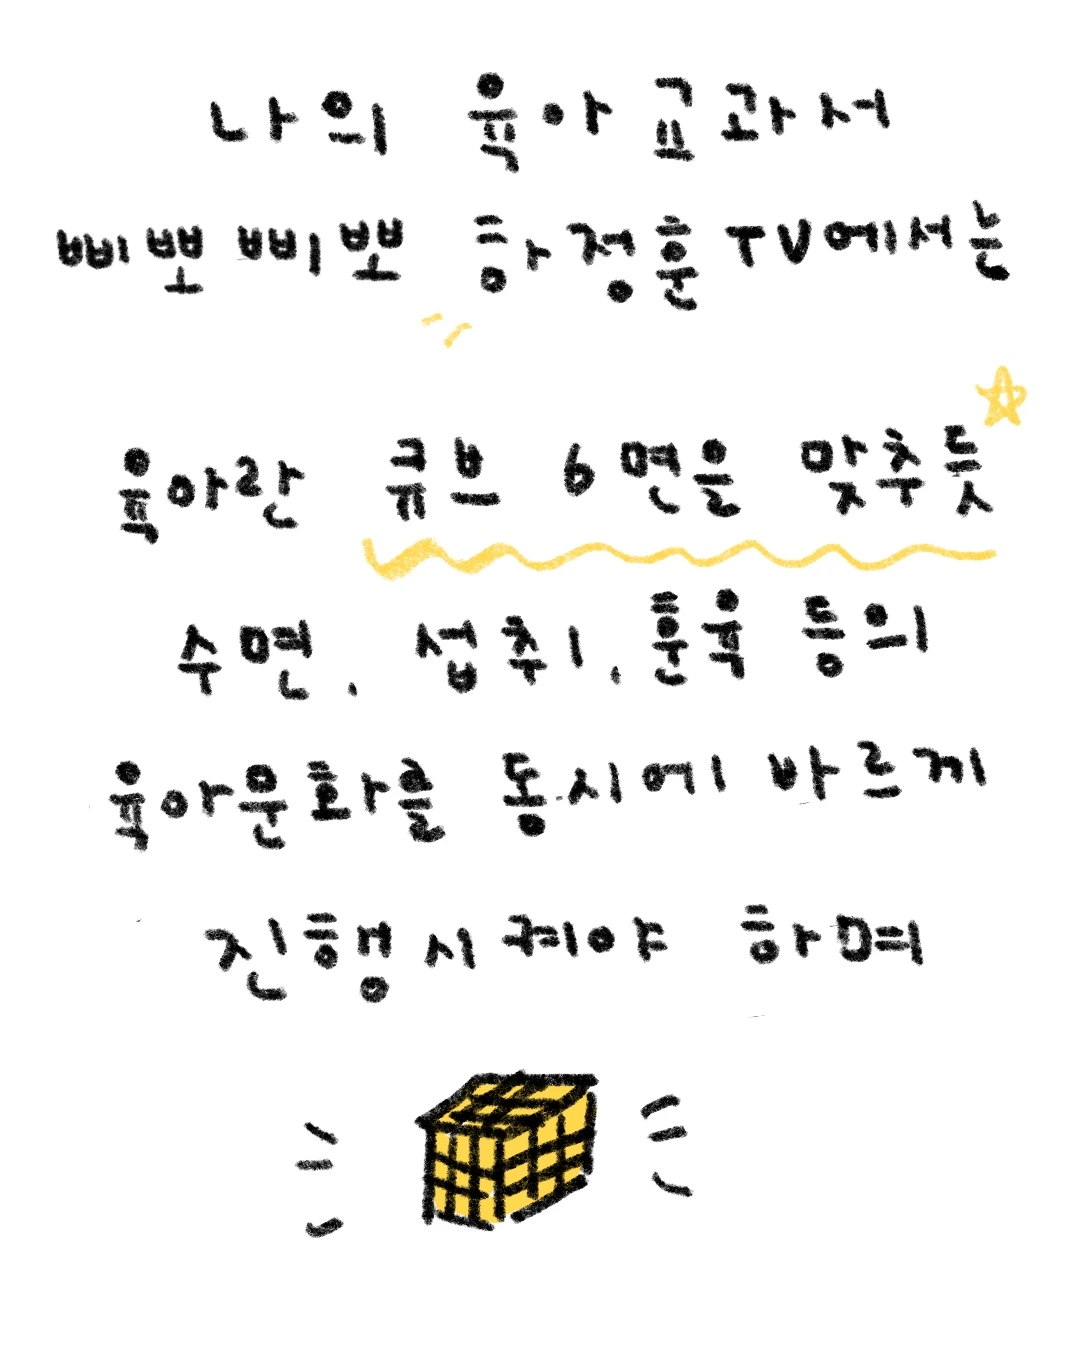 나의 육아 교과서
삐뽀삐뽀 하정훈TV에서는
육아란 큐브 6면을 맞추듯
수면, 섭취, 훈육 등의
육아문화를 동시에 바르게
진행시켜야 하며